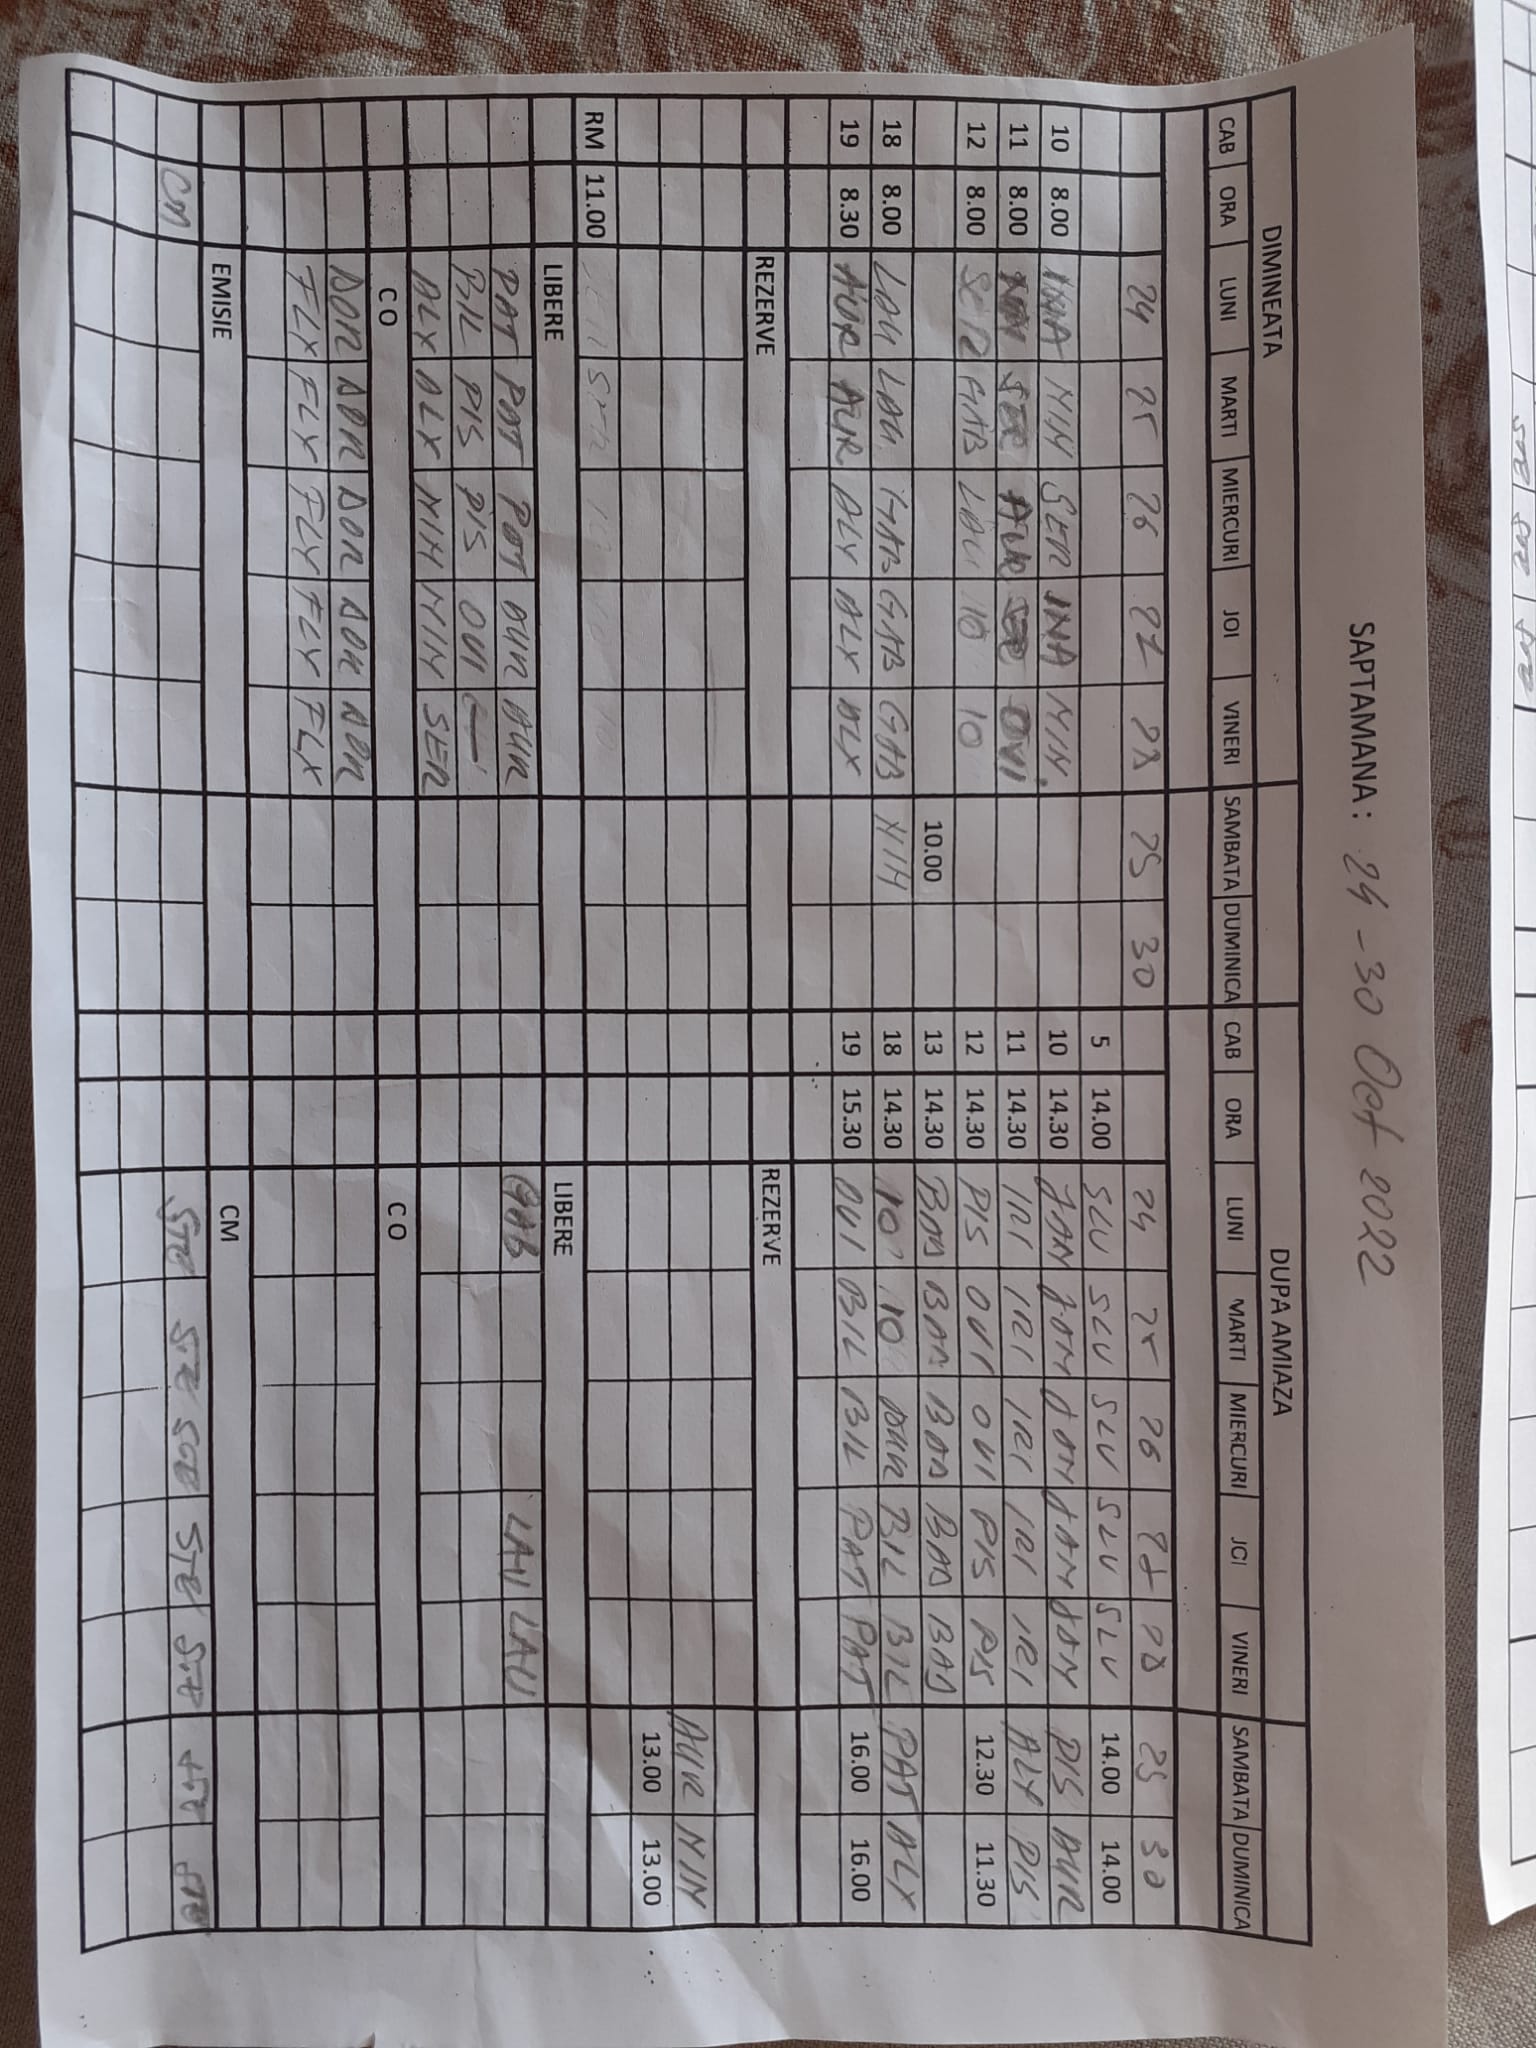 STE STE STE
SAPTAMANA : 24 - 30 Oct 2022
DIMINEATA DUPA AMIAZA
CAB ORA LUNI MARTI MIERCURI JOI VINERI SAMBATA DUMINICA CAB ORA LUNI MARTI MIERCURI JOI VINERI SAMBATA DUMINICA
24 25 26 27 28 29 30 24 25 26 27 28 29 30
5 14.00 SLV SLV SLV SLV SLV 14.00 14.00
10 8.00 INA MIM SER INA MIM. 10 14.30 JAM JAM JAM JAM JAM PIS AUR
11 8.00 SER AUR SER OVI 11 14.30 IRI IRI IRI IRI IRI ALX PIS
12 8.00 SER GAB LAU 10 10 12 14.30 PIS OVI OVI PIS PIS 12.30 11.30
10.00 13 14.30 BAD BAD BAD BAD BAD
18 8.00 LAU LAU GAB GAB GAB MIM 18 14.30 10 10 AUR BIL BIL PAT ALX
19 8.30 AUR AUR ALX ALX ALX 19 15.30 OVI BIL BIL PAT PAT 16.00 16.00
REZERVE REZERVE
AUR MIM
13.00 13.00
RM 11.00 SER SER 10 10 10
LIBERE LIBERE
PAT PAT PAT AUR AUR GAB LAU LAU
BIL PIS PIS OVI
ALX ALX MIM MIM SER
C O C O
DOR DOR DOR DOR DOR
FLX FLX FLX FLX FLX
EMISIE CM
CM STE STE STE STE STE STE STE